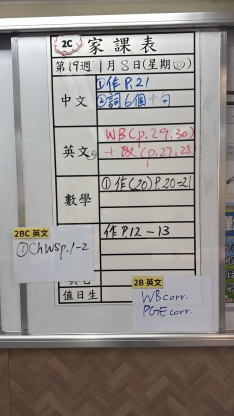 2C 家課表
第19週 1月8日(星期四)
中文
①作 P.21
②詞6個+句
英文
WB(p.29,30)
+ 改(p.27,28
數學
①作(20)P.20-21
作P.12-13
2BC 英文
①ChWSp.1-2
2B 英文
WBcorr.
PGEcorr.
值日生